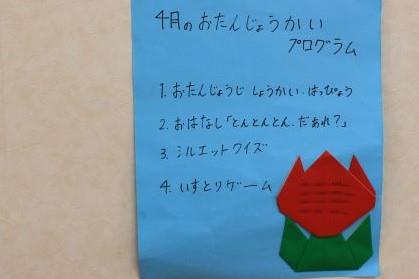 4月のおたんじょうかい
プログラム
1. おたんじょうじ しょうかい・はっぴょう
2. おはなし「とんとんとん、だあれ?」
3. シルエットクイズ
4. いすとりゲーム